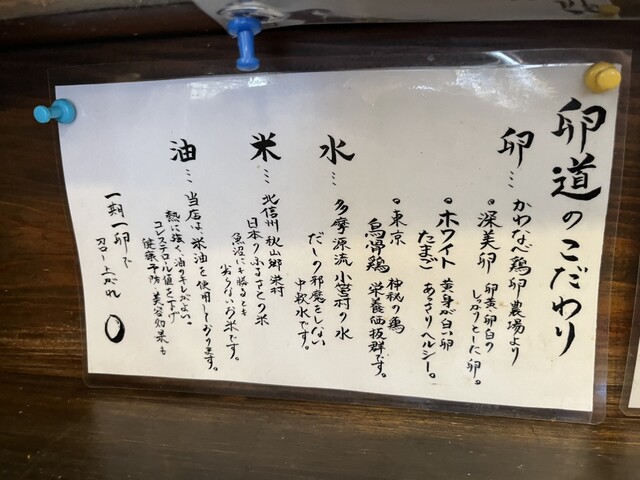 卵道のこだわり
卵… かわなべ鶏卵農場より
。深美卵 卵黄卵白の
しっかりとした卵。
。ホワイト 黄身が白い卵
たまご あっさりヘルシー。
。東京 神秘の鶏
烏骨鶏 栄養価抜群です。
水… 多摩源流 小菅村の水
だしの邪魔をしない
中軟水です。
米… 北信州 秋山郷 米村
日本のふるさとの米
魚沼にも勝るとも
劣らないお米です。
油… 当店は、米油を使用しております。
熱に強く、油のキレがよい。
コレステロール値を下げ
健康予防・美容効果も
一期一卵で
召し上がれ